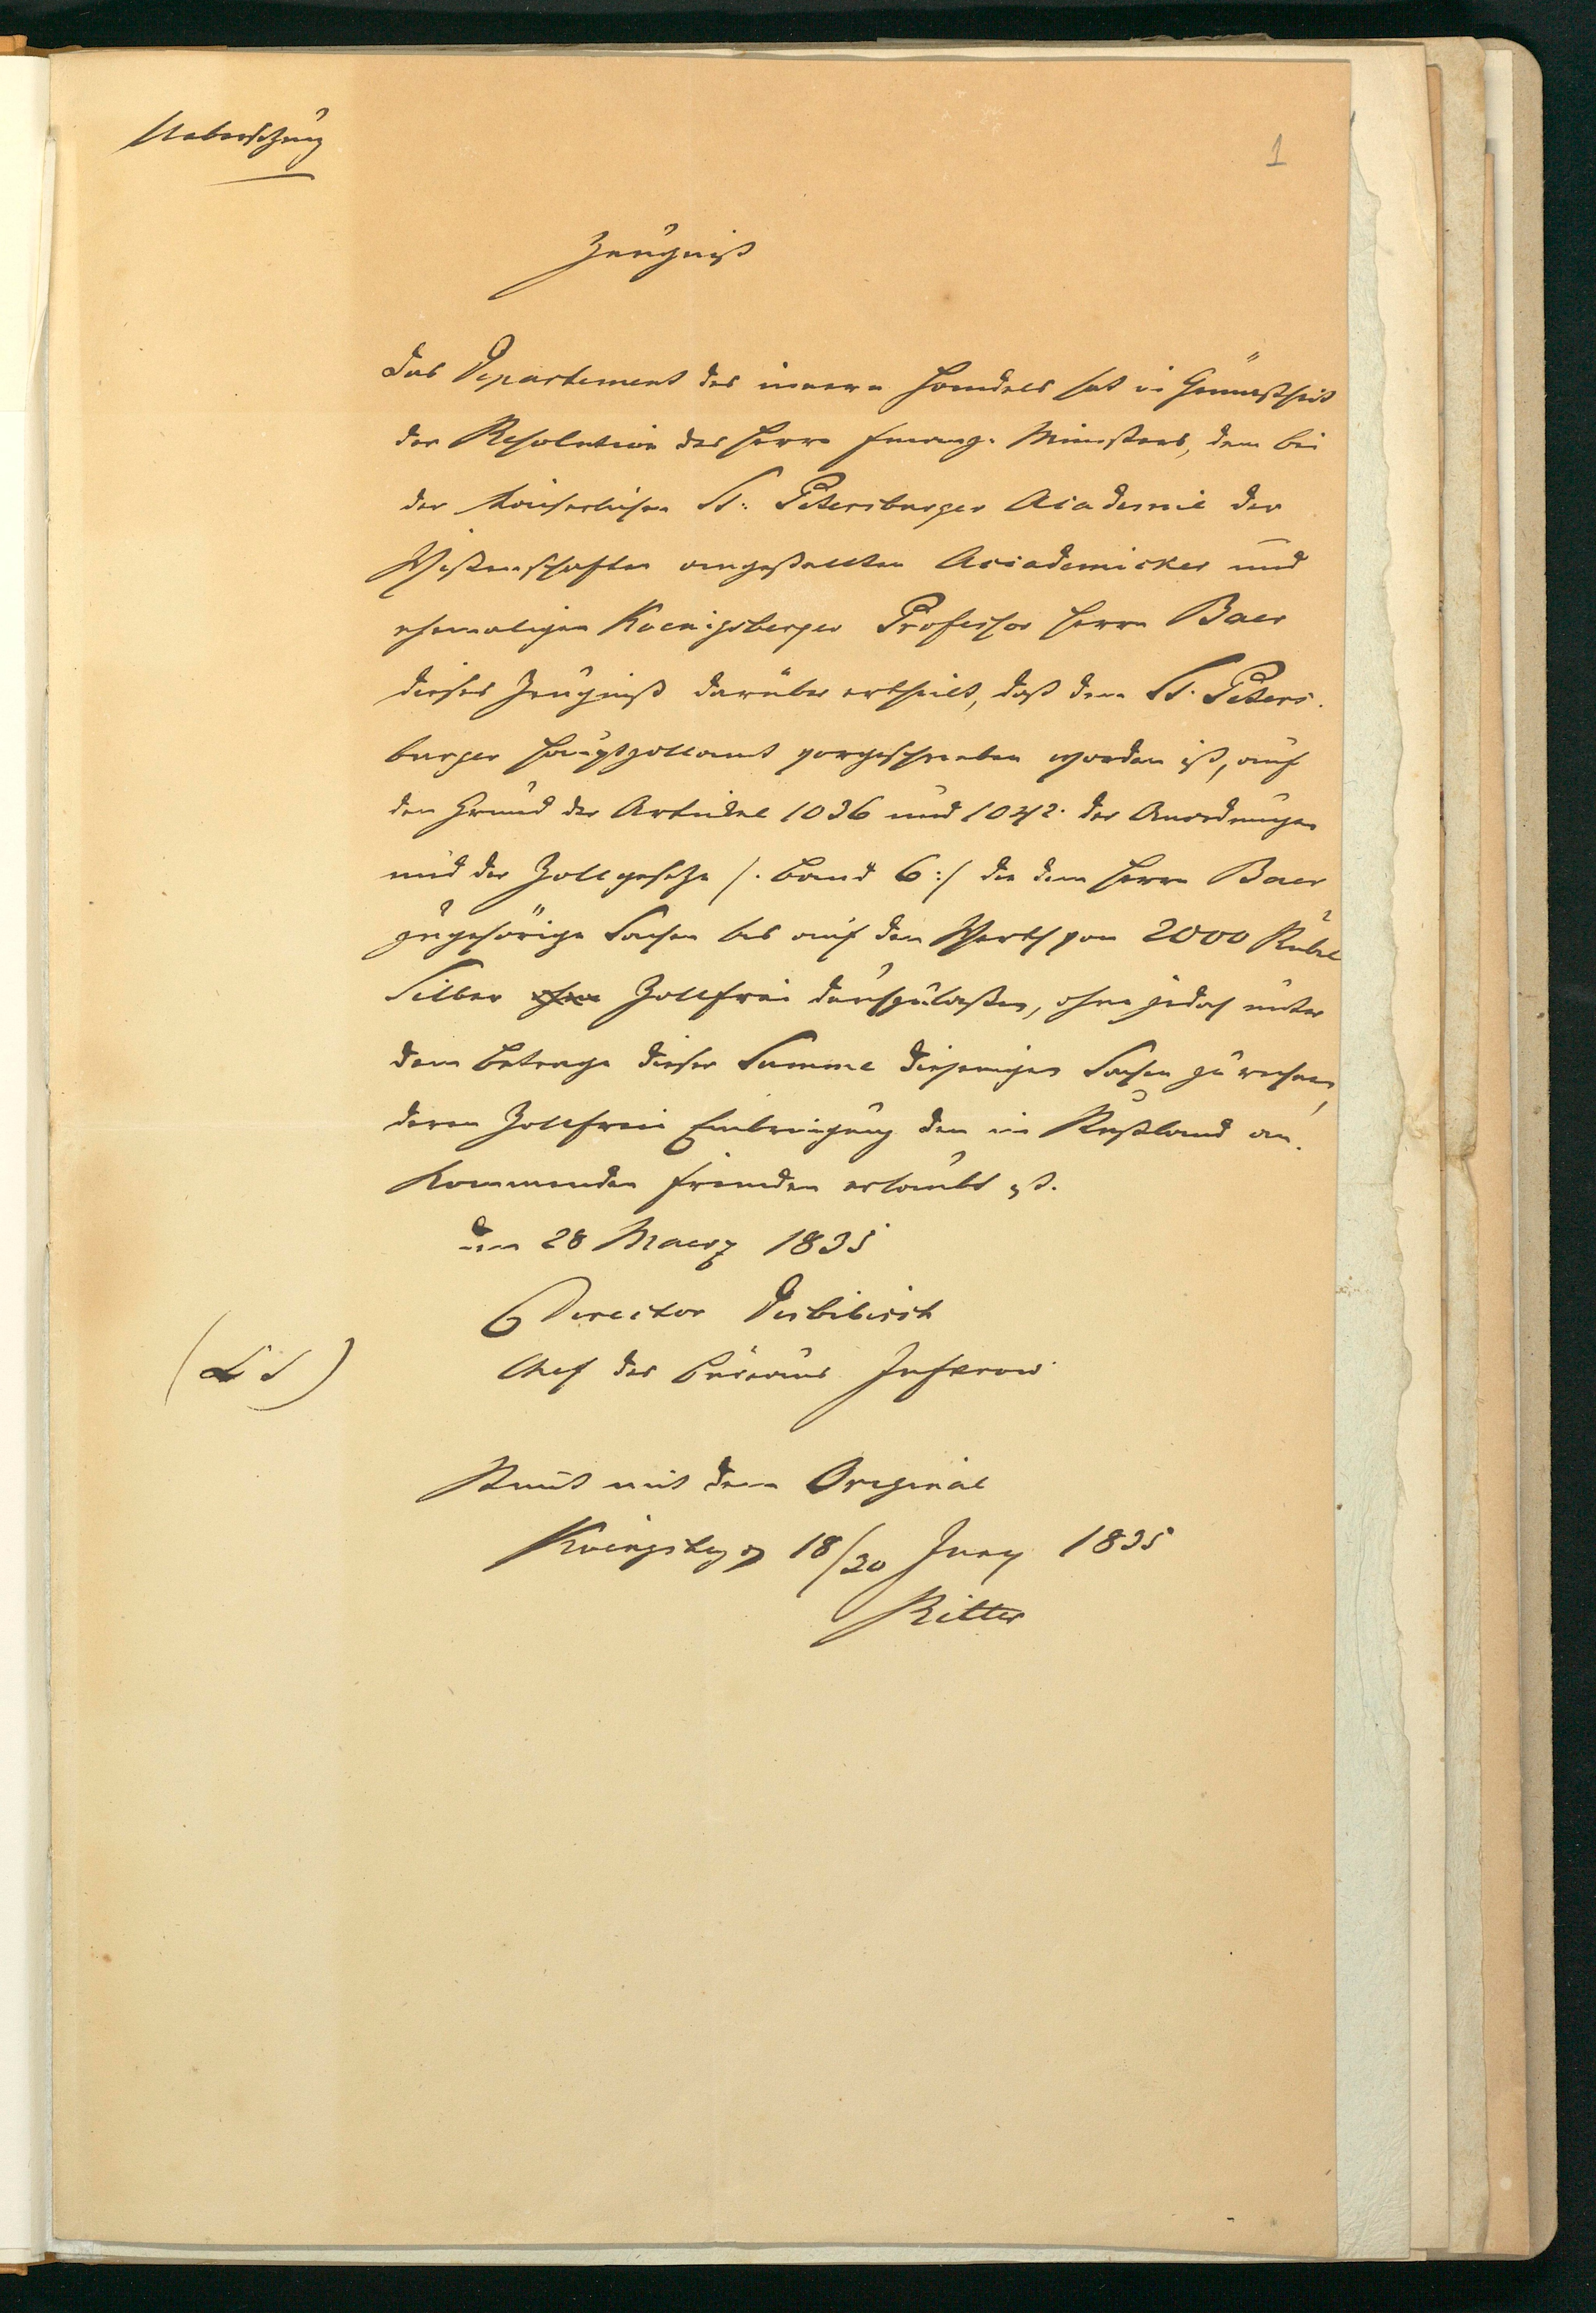 Uebersetzung
1
Zeugniß
Das Departement des innern Handels hat in Gemäßheit
der Resolution des Herrn Finanz-Ministers, dem bei
der Kaiserlichen St. Petersburger Academie der
Wissenschaften angestellten Accademicker und
ehemaligen Koenigsberger Professor Herrn Baer
dieses Zeugniß darüber ertheilt, daß dem St. Peters-
burger Hauptzollamt vorgeschrieben worden ist, auf
den Grund der Artickel 1036 und 1042. der Anordnungen
und der Zollgesetze /: Band 6 :/ die dem Herrn Baer
zugehörige Sachen bis auf den Werth von 2000 Rubel
Silber Zollfrei durchzulaßen, ohne jedoch unter
dem Betrage dieser Summe diejenigen Sachen zu rechnen,
deren Zollfreie Einbringung den in Rußland an-
kommenden Fremden erlaubt ist.
den 28 Maerz 1835
Director
Chef des Büreaus
(L S)
Stimt mit dem Original
Koenigsberg 18/30 Juny 1835
Ritter